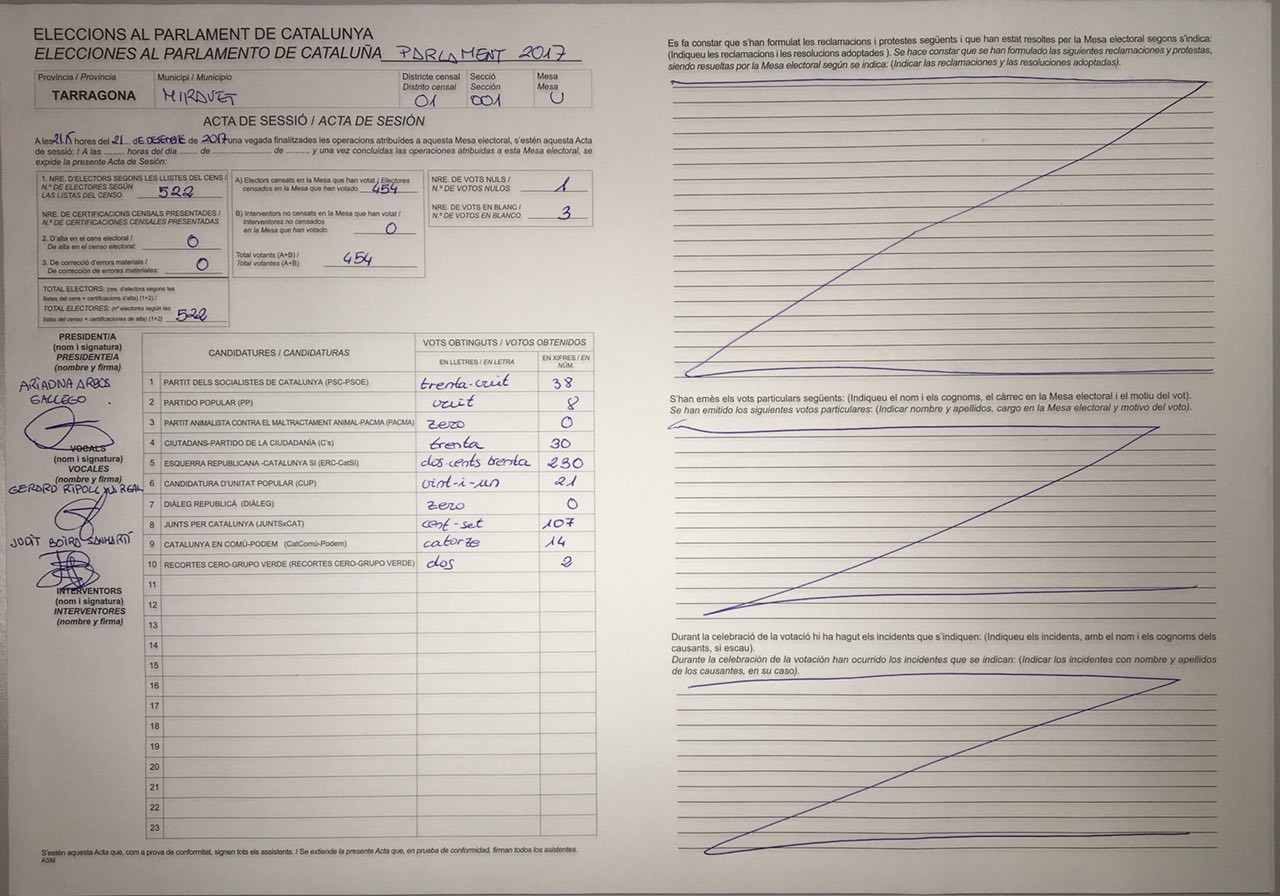 ELECCIONS AL PARLAMENT DE CATALUNYA
ELECCIONES AL PARLAMENTO DE CATALUÑA PARLAMENT 2017
Província / Provincia
TARRAGONA
Municipi / Municipio
MIRAVET
Districte censal
Distrito censal
01
Secció
Sección
001
Mesa
Mesa
U
ACTA DE SESSIÓ / ACTA DE SESIÓN
A les hores del 21 de DESEMBRE de 2017 una vegada finalitzades les operacions atribuïdes a aquesta Mesa electoral, s'estén aquesta Acta
de sessió: / A las ......... horas del día ....... de ........................ de ........, y una vez concluidas las operaciones atribuidas a esta Mesa electoral, se
expide la presente Acta de Sesión:
1. NRE. D'ELECTORS SEGONS LES LLISTES DEL CENS /
N.º DE ELECTORES SEGÚN
LAS LISTAS DEL CENSO 522
NRE. DE CERTIFICACIONS CENSALS PRESENTADES /
N.º DE CERTIFICACIONES CENSALES PRESENTADAS
2. D'alta en el cens electoral /
De alta en el censo electoral: 0
3. De correcció d'errors materials /
De corrección de errores materiales: 0
TOTAL ELECTORS: (nre. d'electors segons les
llistes del cens + certificacions d'alta) (1+2) /
TOTAL ELECTORES: (nº electores según las
listas del censo + certificaciones de alta) (1+2) 522
A) Electors censats en la Mesa que han votat / Electores
censados en la Mesa que han votado 454
B) Interventors no censats en la Mesa que han votat /
Interventores no censados
en la Mesa que han votado 0
Total votants (A+B) /
Total votantes (A+B) 454
NRE. DE VOTS NULS /
N.º DE VOTOS NULOS 1
NRE. DE VOTS EN BLANC /
N.º DE VOTOS EN BLANCO 3
PRESIDENT/A
(nom i signatura)
PRESIDENTE/A
(nombre y firma)
ARIADNA ARBOS
GALLEGO
VOCALS
(nom i signatura)
VOCALES
(nombre y firma)
GERARD RIPOLL
JUDIT
INTERVENTORS
(nom i signatura)
INTERVENTORES
(nombre y firma)
CANDIDATURES / CANDIDATURAS
VOTS OBTINGUTS / VOTOS OBTENIDOS
EN LLETRES / EN LETRA
EN XIFRES / EN NÚM.
1 PARTIT DELS SOCIALISTES DE CATALUNYA (PSC-PSOE) trenta-vuit 38
2 PARTIDO POPULAR (PP) vuit 8
3 PARTIT ANIMALISTA CONTRA EL MALTRACTAMENT ANIMAL-PACMA (PACMA) zero 0
4 CIUTADANS-PARTIDO DE LA CIUDADANÍA (C's) trenta 30
5 ESQUERRA REPUBLICANA -CATALUNYA SI (ERC-CatSí) dos-cents trenta 230
6 CANDIDATURA D'UNITAT POPULAR (CUP) vint-i-un 21
7 DIÀLEG REPUBLICÀ (DIÀLEG) zero 0
8 JUNTS PER CATALUNYA (JUNTSxCAT) cent-set 107
9 CATALUNYA EN COMÚ-PODEM (CatComú-Podem) catorze 14
10 RECORTES CERO-GRUPO VERDE (RECORTES CERO-GRUPO VERDE) dos 2
11
12
13
14
15
16
17
18
19
20
21
22
23
S'estén aquesta Acta que, com a prova de conformitat, signen tots els assistents. / Se extiende la presente Acta que, en prueba de conformidad, firman todos los asistentes.
ASM
Es fa constar que s'han formulat les reclamacions i protestes següents i que han estat resoltes per la Mesa electoral segons s'indica:
(Indiqueu les reclamacions i les resolucions adoptades ). Se hace constar que se han formulado las siguientes reclamaciones y protestas,
siendo resueltas por la Mesa electoral según se indica: (Indicar las reclamaciones y las resoluciones adoptadas).
S'han emès els vots particulars següents: (Indiqueu el nom i els cognoms, el càrrec en la Mesa electoral i el motiu del vot).
Se han emitido los siguientes votos particulares: (Indicar nombre y apellidos, cargo en la Mesa electoral y motivo del voto).
Durant la celebració de la votació hi ha hagut els incidents que s'indiquen: (Indiqueu els incidents, amb el nom i els cognoms dels
causants, si escau).
Durante la celebración de la votación han ocurrido los incidentes que se indican: (Indicar los incidentes con nombre y apellidos
de los causantes, en su caso).